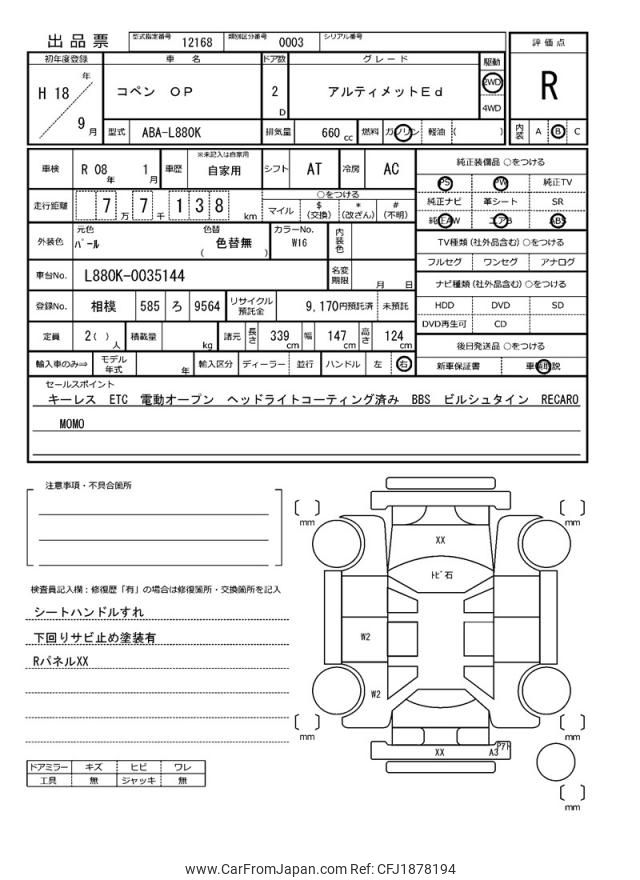 出品票 型式指定番号 12168 類別区分番号 0003 シリアル番号
評価点
R
初年度登録 車名 ドア数 グレード 駆動
H 18 年 9 月 コペン OP 2 D アルティメットEd 2WD 4WD
型式 ABA-L880K 排気量 660 cc 燃料 ガソリン 軽油 ( ) 内装 A B C
車検 R 08 年 1 月 車歴 ※未記入は自家用 自家用 シフト AT 冷房 AC
純正装備品 ○をつける
PS PW 純正TV
純正ナビ 革シート SR
純正AW エアB ABS
走行距離 7 万 7 千 1 3 8 km
○をつける
マイル $ (交換) * (改ざん) # (不明)
外装色 元色 パール 色替 色替無 ( ) カラーNo. W16 内装色
TV種類 (社外品含む) ○をつける
フルセグ ワンセグ アナログ
車台No. L880K-0035144 名変期限 月 日
ナビ種類 (社外品含む) ○をつける
HDD DVD SD
DVD再生可 CD
登録No. 相模 585 ろ 9564 リサイクル預託金 9,170円預託済 未預託
定員 2( ) 人 積載量 kg 諸元 長さ 339 cm 幅 147 cm 高さ 124 cm
後日発送品 ○をつける
新車保証書
輸入車のみ⇒ モデル年式 年 輸入区分 ディーラー 並行 ハンドル 左 右
セールスポイント
キーレス ETC 電動オープン ヘッドライトコーティング済み BBS ビルシュタイン RECARO
MOMO
注意事項・不具合箇所
検査員記入欄：修復歴「有」の場合は修復箇所・交換箇所を記入
シートハンドルすれ
下回りサビ止め塗装有
RパネルXX
ドアミラー キズ ヒビ ワレ
工具 無 ジャッキ 無
[ ] mm
[ ] mm
XX
トビ石
W2
W2
[ ] mm
[ ] mm
XX A3
[ ] mm
www.CarFromJapan.com Ref: CFJ1878194